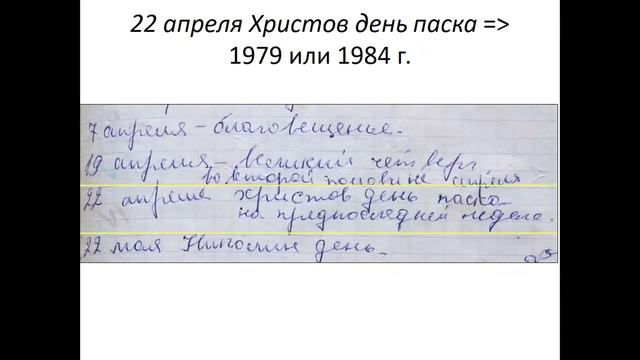 22 апреля Христов день паска =>
1979 или 1984 г.
7 апреля – благовещенье.
19 апреля – великий четверг
во второй половине апреля
22 апреля христов день паска
на предпоследней неделе.
22 мая Николин день.